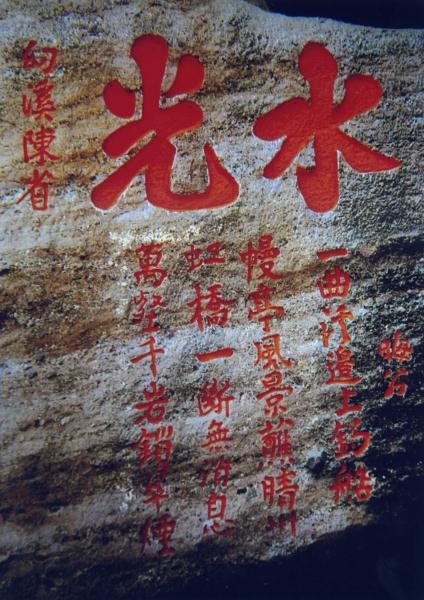 水光
幻溪陳省
晦翁
一曲溪邊上釣船
幔亭風景蘸晴川
虹橋一斷無消息
萬壑千岩鎖翠煙